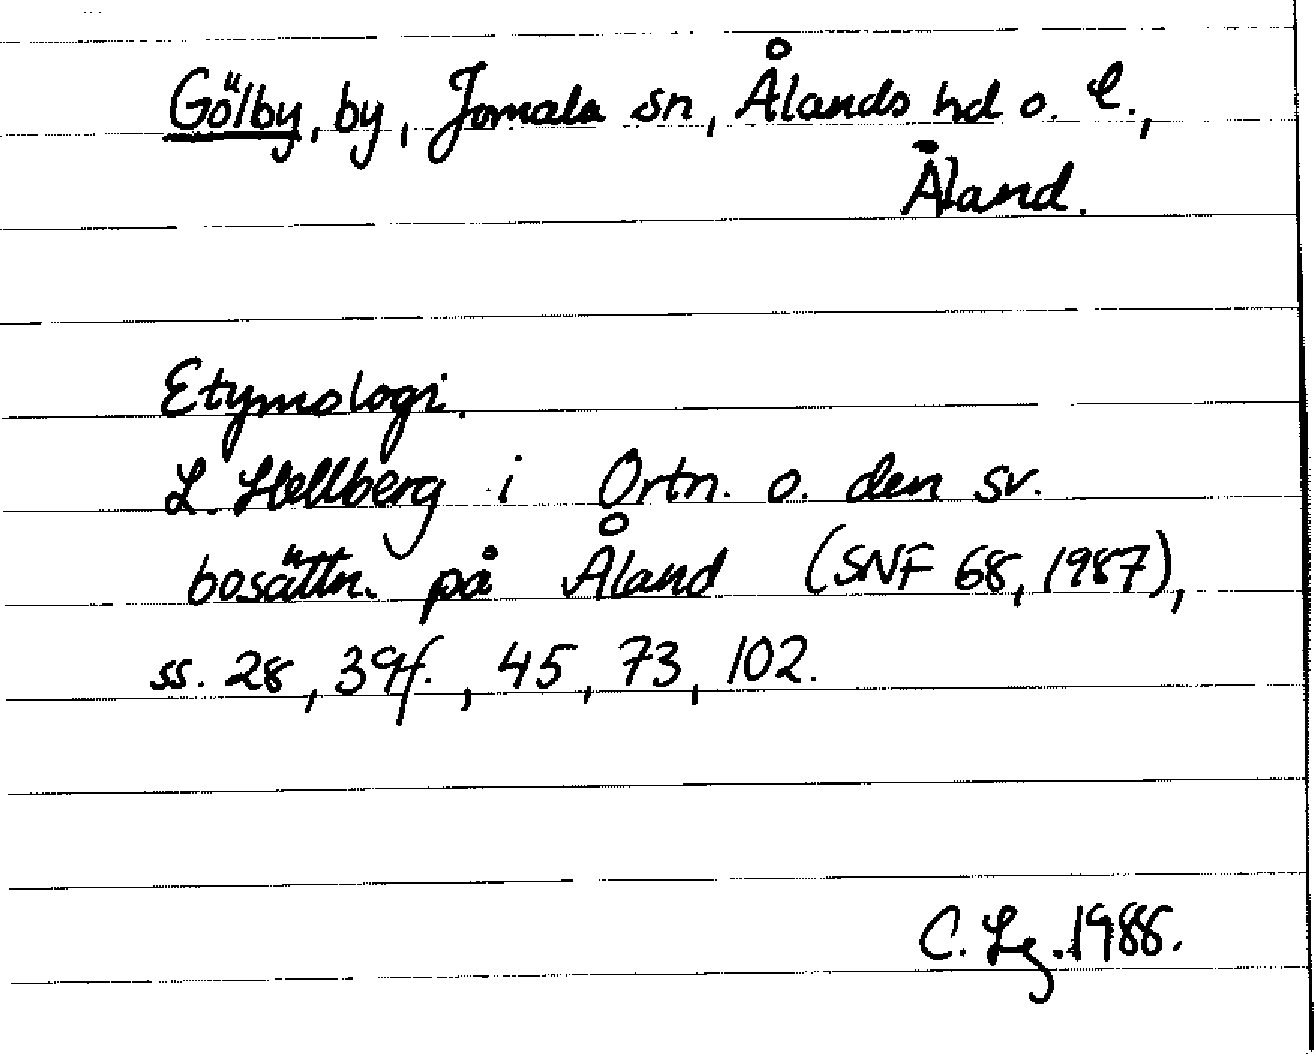 Gölby, by, Jomala sn, Ålands hd o. l.,
Åland.
Etymologi.
L. Hellberg i Ortn. o. den sv.
bosättn. på Åland (SNF 68, 1987),
ss. 28, 39f., 45, 73, 102.
C. Lg. 1988.